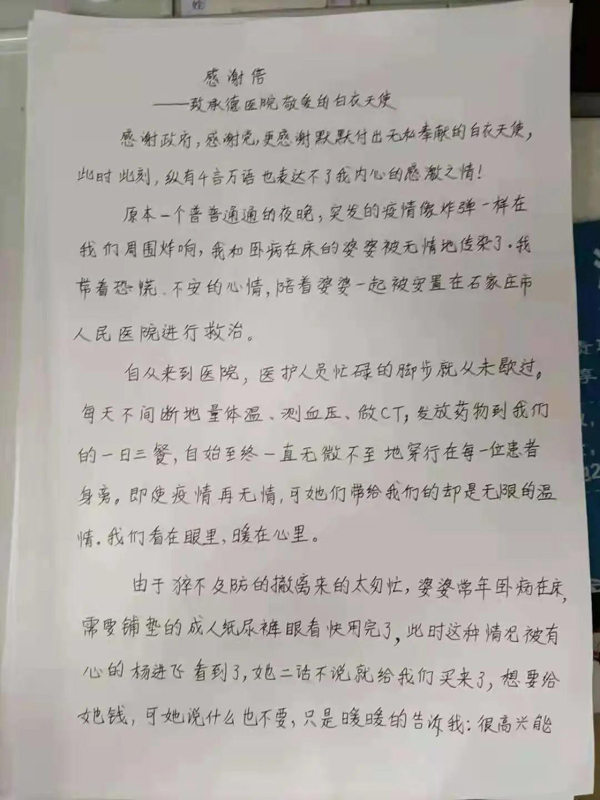 感谢信
——致承德医院敬爱的白衣天使
感谢政府，感谢党，更感谢默默付出无私奉献的白衣天使，
此时此刻，纵有千言万语也表达不了我内心的感激之情！
原本一个普普通通的夜晚，突发的疫情像炸弹一样在
我们周围炸响，我和卧病在床的婆婆被无情地传染了。我
带着恐慌、不安的心情，陪着婆婆一起被安置在石家庄市
人民医院进行救治。
自从来到医院，医护人员忙碌的脚步就从未歇过。
每天不间断地量体温、测血压、做CT，发放药物到我们
的一日三餐，自始至终一直无微不至地穿行在每一位患者
身旁。即使疫情再无情，可她们带给我们的却是无限的温
情。我们看在眼里，暖在心里。
由于猝不及防的撤离来的太匆忙，婆婆常年卧病在床，
需要铺垫的成人纸尿裤眼看快用完了，此时这种情况被有
心的杨进飞看到了，她二话不说就给我们买来了，想要给
她钱，可她说什么也不要，只是暖暖的告诉我：很高兴能